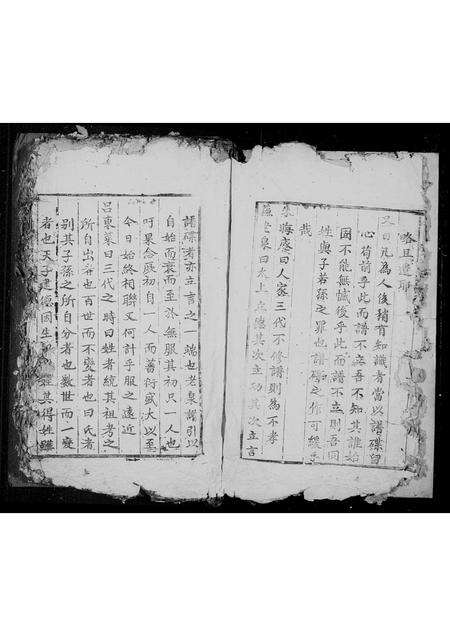 略且遠耶
曰凡為人後稍有知識者當以譜牒留
心苟前乎此而譜不立吾不知其誰始
固不能無憾後乎此而譜不立則吾同
姓與子若孫之罪也譜牒之作可緩乎
哉
朱晦庵曰人家三代不修譜則為不孝
泉曰太上立德其次立功其次立言
譜牒者亦立言之一端也老泉譜引以
自始而衰而至於無服其初只一人也
吁果念厥初自一人而蕃衍盛大以至
今日始終相聯又何計乎服之遠近
呂東萊曰三代之時曰姓者統其祖考之
所自出者也百世而不變者也曰氏者
別其子孫之所自分者也數世而一變
者也天子建德因生以賜姓其得姓雖